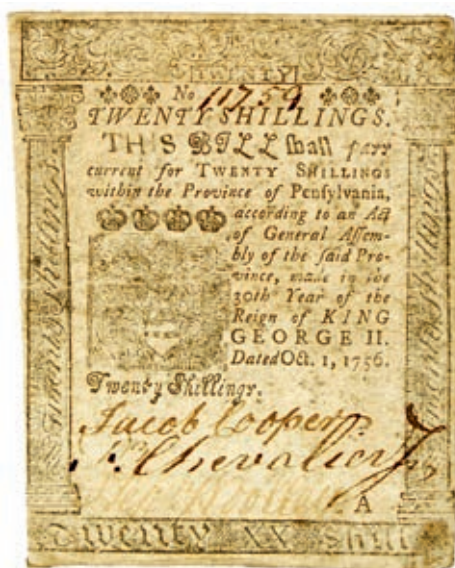 TWENTY
No 11759
TWENTY SHILLINGS.
THIS BILL shall pass
current for TWENTY SHILLINGS
within the Province of Pensylvania,
according to an Act
of General Assem-
bly of the said Pro-
vince, made in the
30th Year of the
Reign of KING
GEORGE II.
Dated Oct. 1, 1756.
Twenty Shillings.
Jacob Cooper
Chevalier
A
Twenty XX Shill
Twenty Shillings
Twenty Shillings